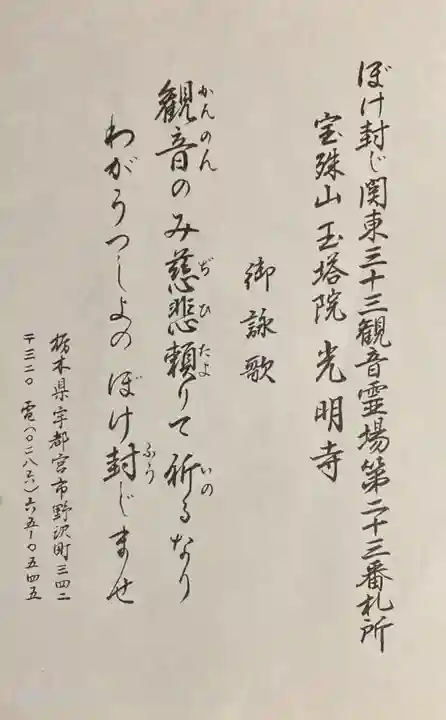 ぼけ封じ関東三十三観音霊場第二十三番札所
宝珠山 玉塔院 光明寺
御詠歌
観音のみ慈悲頼りて祈るなり
かんのん
ぢひ
たよ
いの
わがうつしよのぼけ封じませ
ふう
栃木県宇都宮市野沢町三四二
〒三二〇 電(〇二八六)六五ー〇五四五